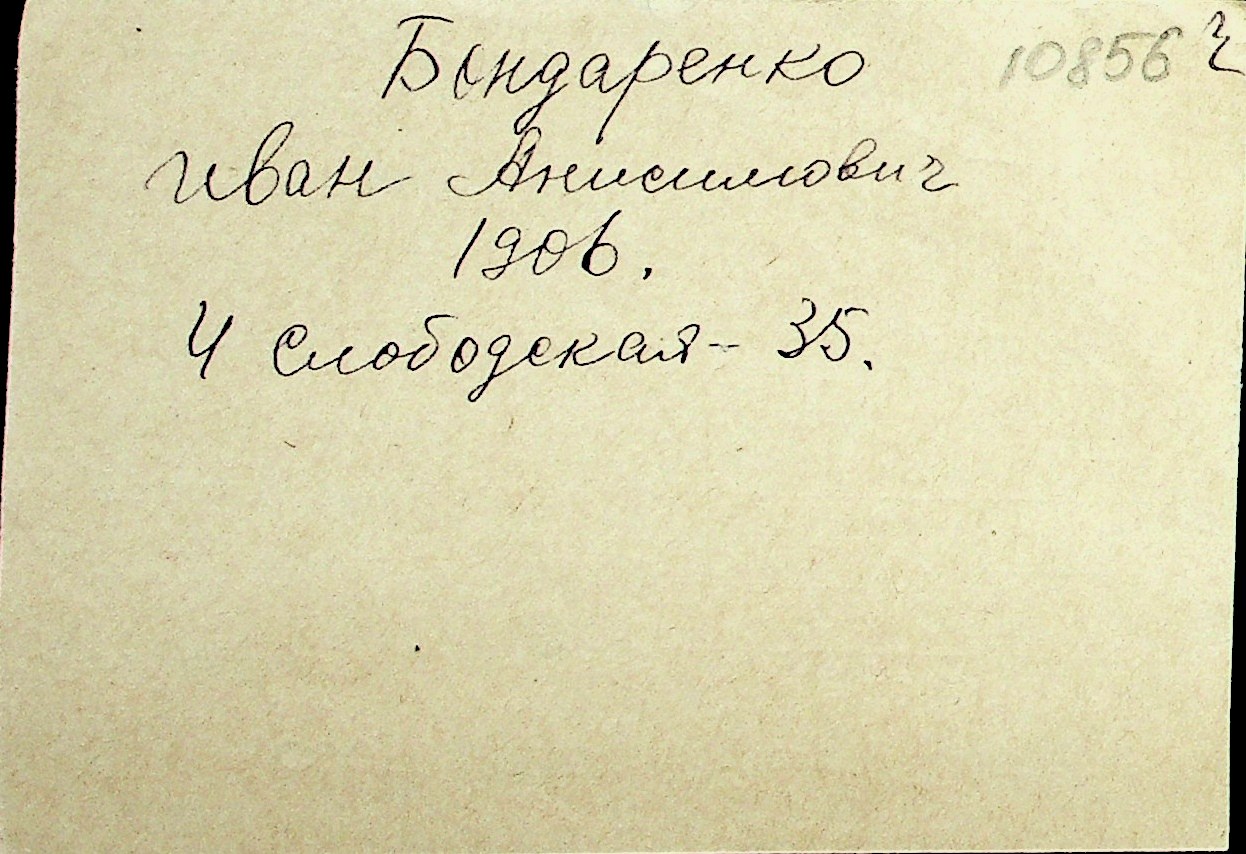 Бондаренко 10856 ч
Иван Анисимович
1906.
4 Слободская - 35.